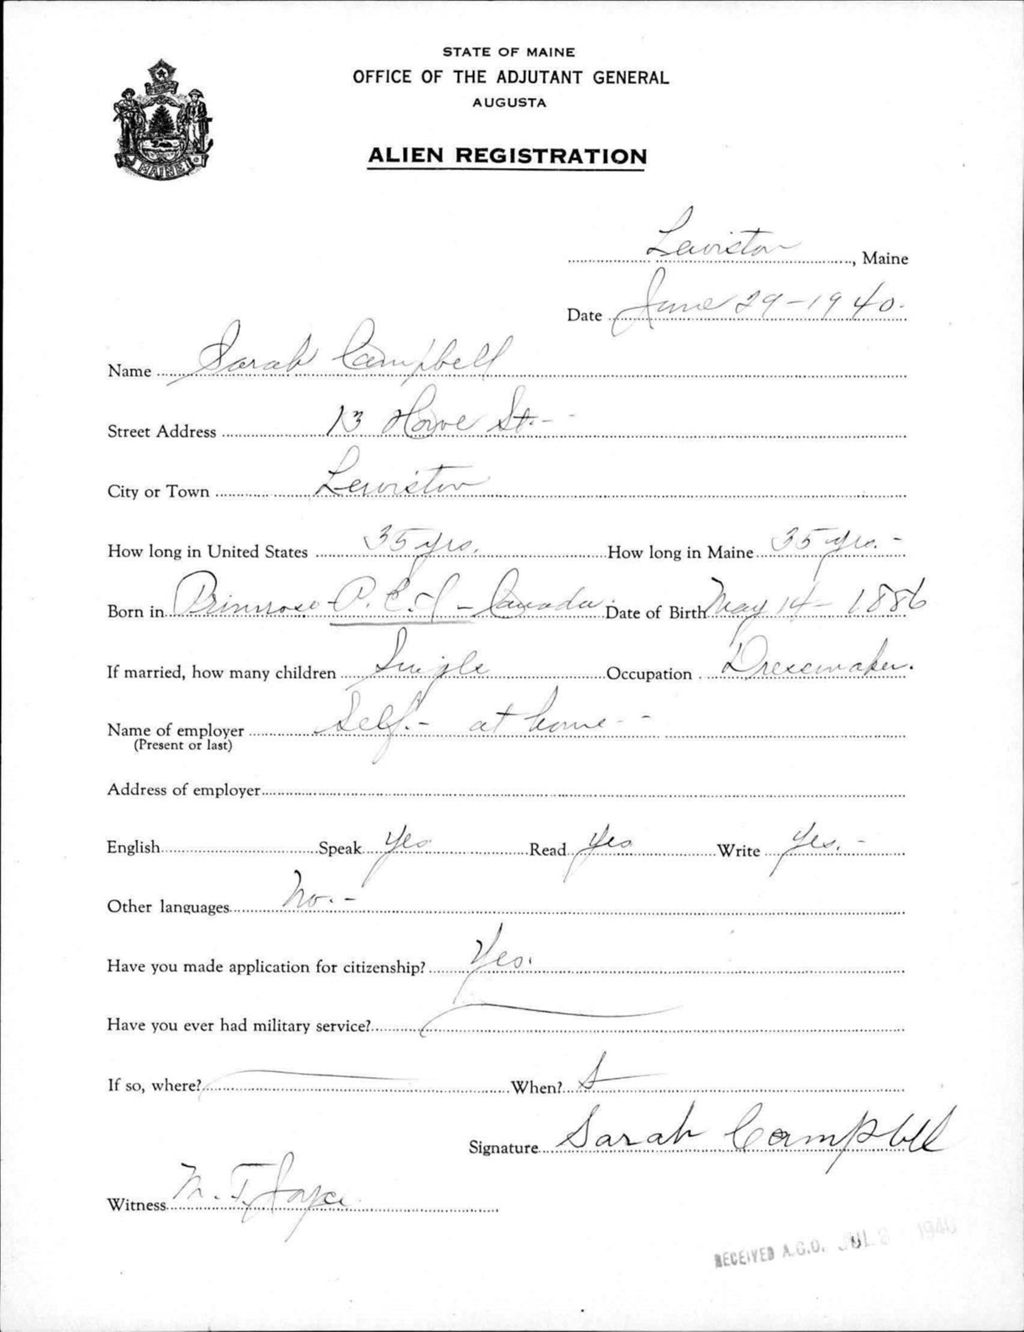 STATE OF MAINE
OFFICE OF THE ADJUTANT GENERAL
AUGUSTA
ALIEN REGISTRATION
MAINE
Lewiston, Maine
Date June 29-1940.
Name Sarah Campbell
Street Address 13 Howe St.-
City or Town Lewiston
How long in United States 35 yrs. How long in Maine 35 yrs.-
Born in Primrose-P.E.I-Canada. Date of Birth May 14-1886
If married, how many children Single Occupation Dressmaker.
Name of employer Self.- at home--
(Present or last)
Address of employer
English Speak Yes Read Yes Write Yes.-
Other languages No.-
Have you made application for citizenship? Yes.
Have you ever had military service?
If so, where? When?
Signature Sarah Campbell
Witness M. T. Joyce
RECEIVED A.G.O. JUL 1940